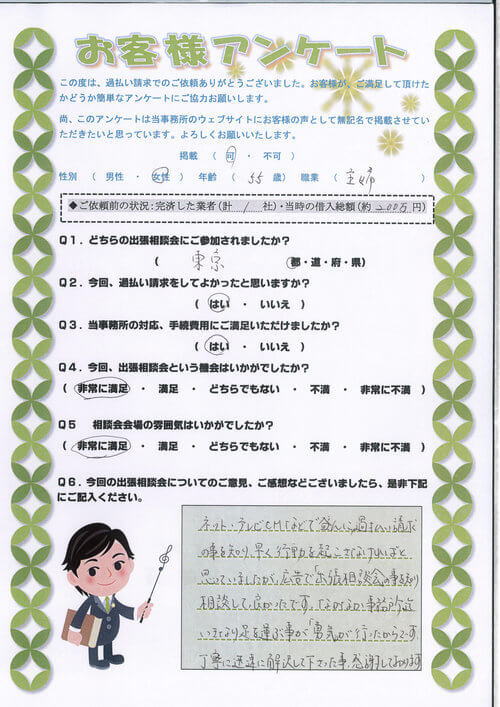 お客様アンケート
この度は、過払い請求でのご依頼ありがとうございました。お客様が、ご満足して頂けた
かどうか簡単なアンケートにご協力お願いします。
尚、このアンケートは当事務所のウェブサイトにお客様の声として無記名で掲載させてい
ただきたいと思っています。よろしくお願いいたします。
掲載 （ 可 ・ 不可 ）
性別 （ 男性 ・ 女性 ） 年齢 （ 55 歳） 職業 （ 主婦 ）
◆ご依頼前の状況：完済した業者（計 1 社）・当時の借入総額（約 200万 円）
Q1．どちらの出張相談会にご参加されましたか？
（ 東京 （都・道・府・県）
Q2．今回、過払い請求をしてよかったと思いますか？
（ はい ・ いいえ ）
Q3．当事務所の対応、手続費用にご満足いただけましたか？
（ はい ・ いいえ ）
Q4．今回、出張相談会という機会はいかがでしたか？
（ 非常に満足 ・ 満足 ・ どちらでもない ・ 不満 ・ 非常に不満 ）
Q5 相談会会場の雰囲気はいかがでしたか？
（ 非常に満足 ・ 満足 ・ どちらでもない ・ 不満 ・ 非常に不満 ）
Q6．今回の出張相談会についてのご意見、ご感想などございましたら、是非下記
にご記入ください。
ネット・テレビCMなどで 過払い請求
の事を知り、早く行動を起こさなければと
思っていましたが、広告で「出張相談会」の事を知り
相談して良かったです。なかなか事務所に
いきなり足を運ぶ事が「勇気」が行ったからです。
丁寧に迅速に解決して下さった事、感謝しております